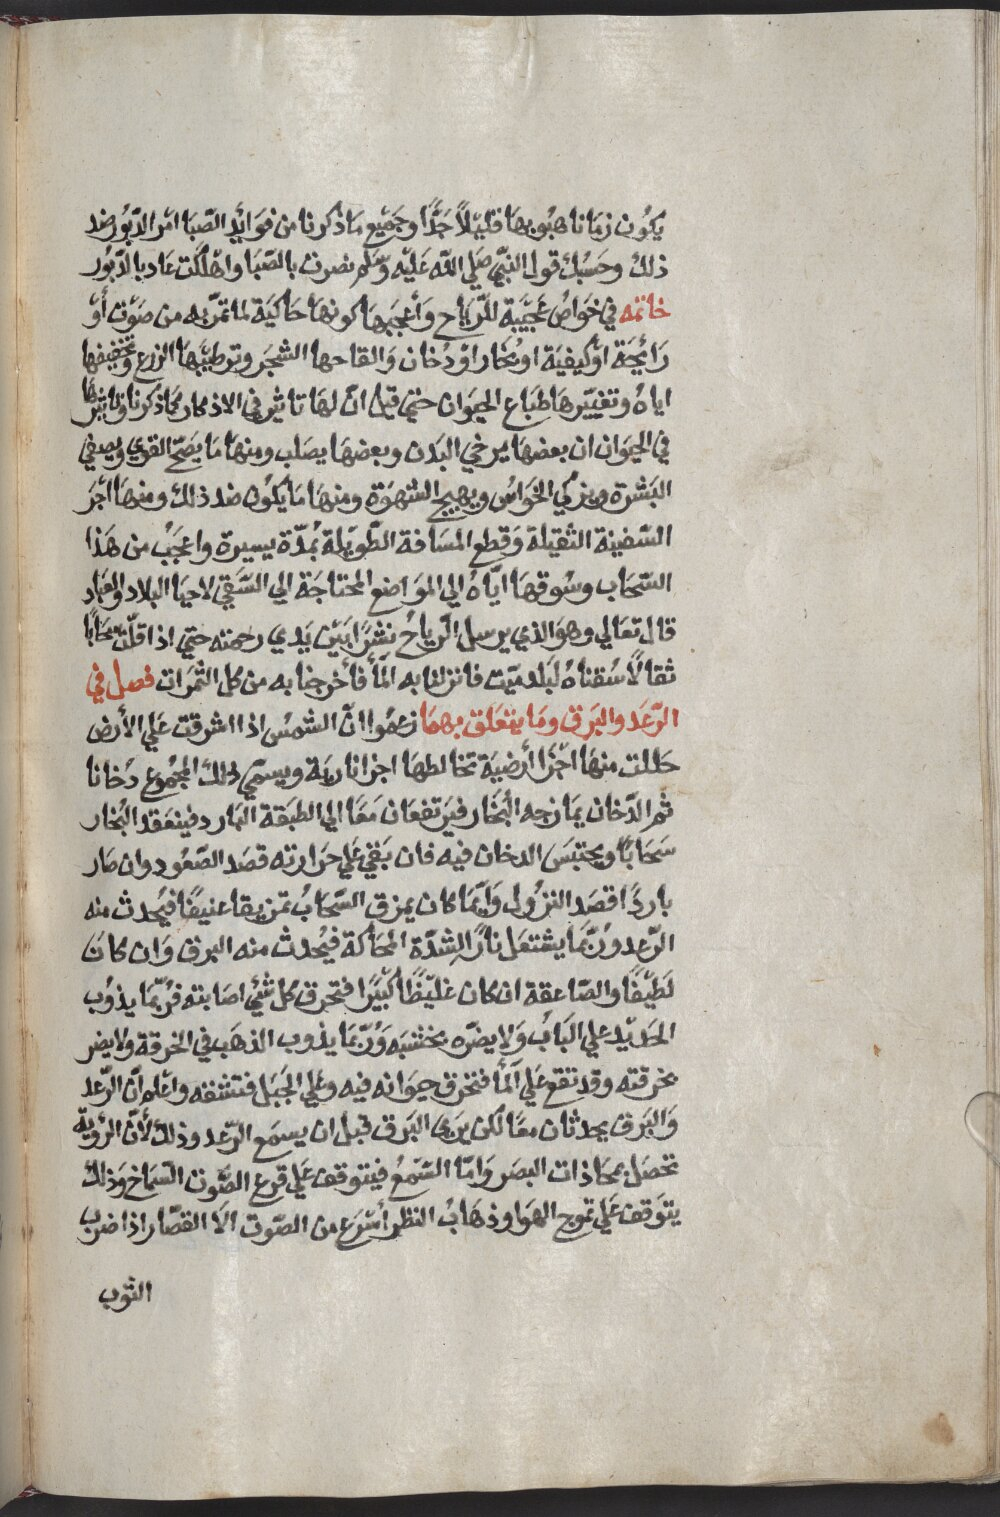 يكون زمانا هبوبها قليلاً جدًّا وجميع ما ذكرنا من فوايد الصّبا امر الدّبور ضد
ذلك وحسبك قول النبّي صلي اللّه عليه وسلم نصرت بالصّبا واهلكت عاد بالدّبور
خاتمه في خواص عجيبة للرّياح وأعجبها كونها حاكية لما تمرّ به من صوت أو
رائحة أو كيفية او بخار او دخان والقاحها الشجر وترطيبها الزرع وتجفيفها
اياه وتغييرها طباع الحيوان حتي قيل انّ لها تاثير في الاذكار كما ذكرنا وتاثيرها
في الحيوان ان بعضها يرخي البدن وبعضها يصلب ومنها ما يصحّ القوي ويصفي
البشرة ويزكي الحواس ويهيج الشهوة ومنها ما يكون ضد ذلك ومنها أجر
السّفينة الثقيلة وقطع المسافة الطّويلة بمدّة يسيرة واعجب من هذا
السّحاب وسوقها ايّاه الي المواضع المحتاجة الي السّقي لاحيا البلاد والعباد
قال تعالي وهو الذي يرسل الرياح نشرًا بين يدي رحمته حتي اذا اقلّت سحابًا
ثقالًا سقناه لبلد ميّت فانزلنا به المأ فأخرجنا به من كل الثمرات فصل في
الرّعد والبرق وما يتعلق بهما زعموا انّ الشمس اذا اشرقت علي الأرض
حللت منها اجزا أرضية تخالطها اجزا نارية ويسمي ذلك المجموع دخانا
ثم الدّخان يمازجه البخار فيرتفعان معًا الي الطبقة الباردة فينعقد البخار
سحاباً ويحتبس الدخان فيه فان بقي علي حرارته قصد الصّعود وان صار
باردًا قصد النزول وأيّما كان يمزق السّحاب تمزيقا عنيفًا فيحدث منه
الرّعد وربّما يشتعل نارًا لشدّة المحاكة فيحدث منه البرق وان كان
لطيفًا والصّاعقة ان كان غليظًا كبيرًا فتحرق كل شئي اصابته فربّما يذوب
الحديد علي الباب ولا يضرّه بخشبه وربّما يذوب الذهب في الخرقة ولا يضر
بخرقته وقد تقع علي المأ فتحرق حيوانه فيه وعلي الجبل فتشقه واعلم انّ الرّعد
والبرق يحدثان معًا لكن يري البرق قبل ان يسمع الرّعد وذلك لأنّ الرؤية
تحصل بمحاذات البصر وامّا السّمع فيتوقف علي قرع الصّوت السّماخ وذلك
يتوقف علي تموج الهوا وذهاب النظر أسرع من الصّوت الا القصّار اذا ضرب
الثوب